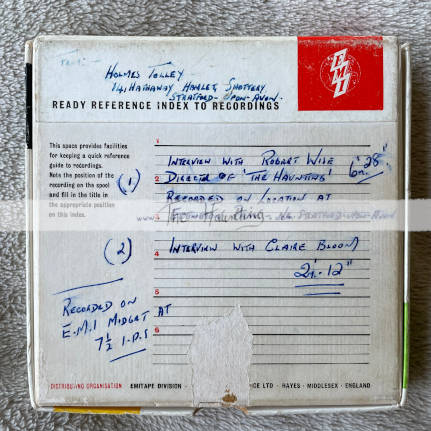 HOLMES TOLLEY
14, HATHAWAY HAMLET, SHOTTERY
STRATFORD-UPON-AVON.
EMI
READY REFERENCE INDEX TO RECORDINGS
This space provides facilities
for keeping a quick reference
guide to recordings.
Note the position of the
recording on the spool
and fill in the title in
the appropriate position
on this index.
1
(1) INTERVIEW WITH ROBERT WISE
2 DIRECTOR OF 'THE HAUNTING' 6' 28"
RECORDED ON LOCATION AT
3 STRATFORD-UPON-AVON
The Haunting
(2) INTERVIEW WITH CLAIRE BLOOM
4
2' - 12"
5
RECORDED ON
E.M.I MIDGET AT
7½ I.P.S
6
DISTRIBUTING ORGANISATION EMITAPE DIVISION · CE LTD · HAYES · MIDDLESEX · ENGLAND